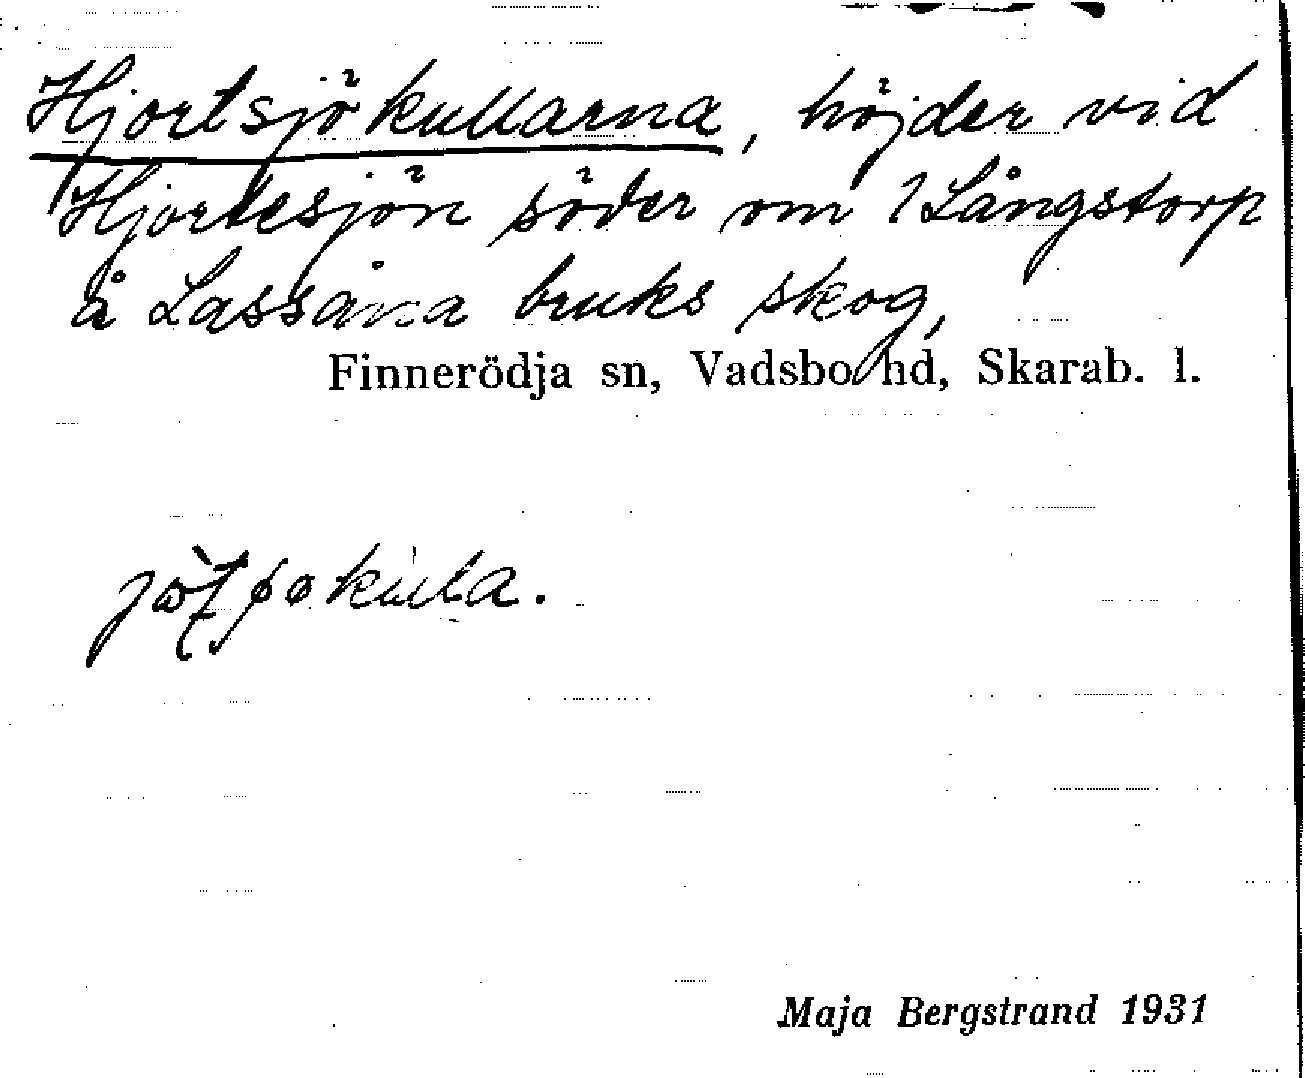 Hjortsjökullarna, höjder vid
Hjortesjön söder om 1 Långstorp
å Lassåna bruks skog,
Finnerödja sn, Vadsbo hd, Skarab. l.
Maja Bergstrand 1931